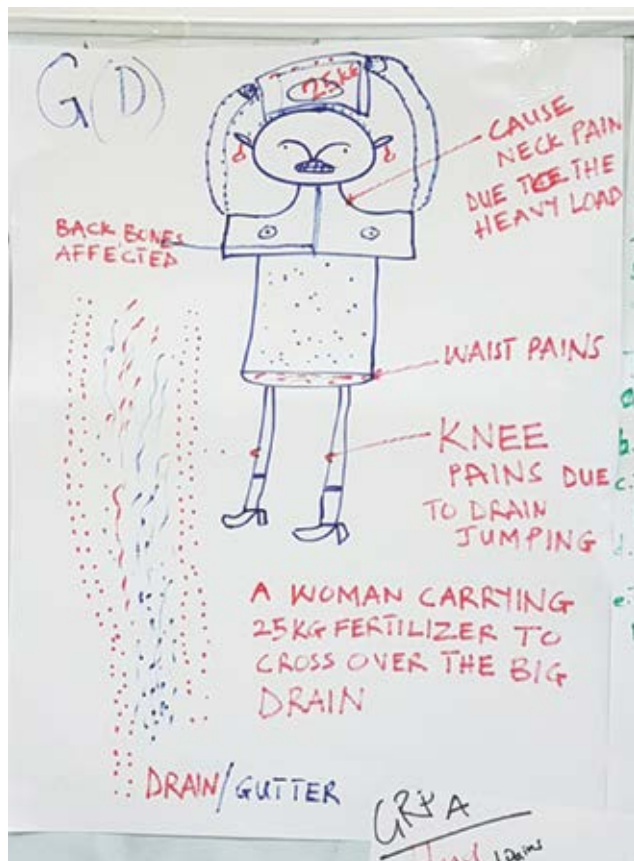 G(D)
25KG
CAUSE
NECK PAIN
DUE TO THE
HEAVY LOAD
BACK BONES
AFFECTED
WAIST PAINS
KNEE
PAINS DUE
TO DRAIN
JUMPING
A WOMAN CARRYING
25KG FERTILIZER TO
CROSS OVER THE BIG
DRAIN
DRAIN/GUTTER
GRP A
b.
c.
d.
e.